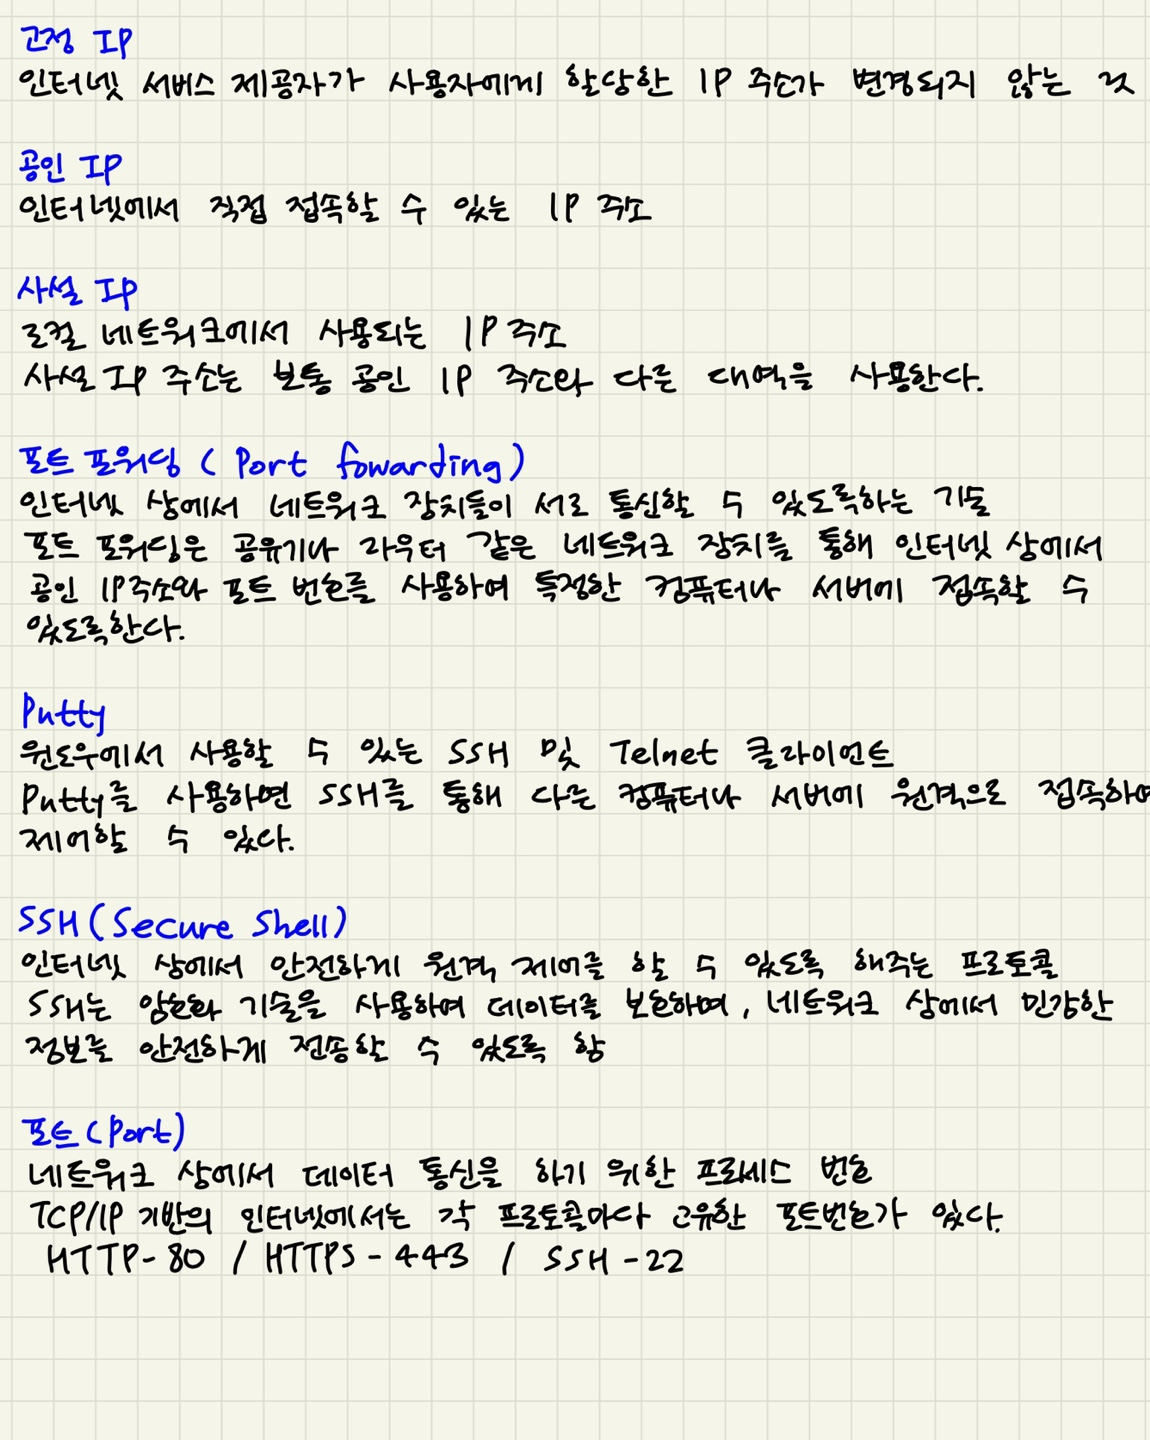 고정 IP
인터넷 서버스 제공자가 사용자에게 할당한 IP 주소가 변경되지 않는 것
공인 IP
인터넷에서 직접 접속할 수 있는 IP 주소
사설 IP
로컬 네트워크에서 사용되는 IP 주소
사설 IP 주소는 보통 공인 IP 주소와 다른 대역을 사용한다.
포트 포워딩 (Port fowarding)
인터넷 상에서 네트워크 장치들이 서로 통신할 수 있도록하는 기술
포트 포워딩은 공유기나 라우터 같은 네트워크 장치를 통해 인터넷 상에서
공인 IP주소와 포트 번호를 사용하여 특정한 컴퓨터나 서버에 접속할 수
있도록한다.
Putty
윈도우에서 사용할 수 있는 SSH 및 Telnet 클라이언트
Putty를 사용하면 SSH를 통해 다른 컴퓨터나 서버에 원격으로 접속하여
제어할 수 있다.
SSH (Secure Shell)
인터넷 상에서 안전하게 원격 제어를 할 수 있도록 해주는 프로토콜
SSH는 암호화 기술을 사용하여 데이터를 보호하며, 네트워크 상에서 민감한
정보를 안전하게 전송할 수 있도록 함
포트 (Port)
네트워크 상에서 데이터 통신을 하기 위한 프로세스 번호
TCP/IP 기반의 인터넷에서는 각 프로토콜마다 고유한 포트번호가 있다.
HTTP-80 / HTTPS-443 / SSH-22